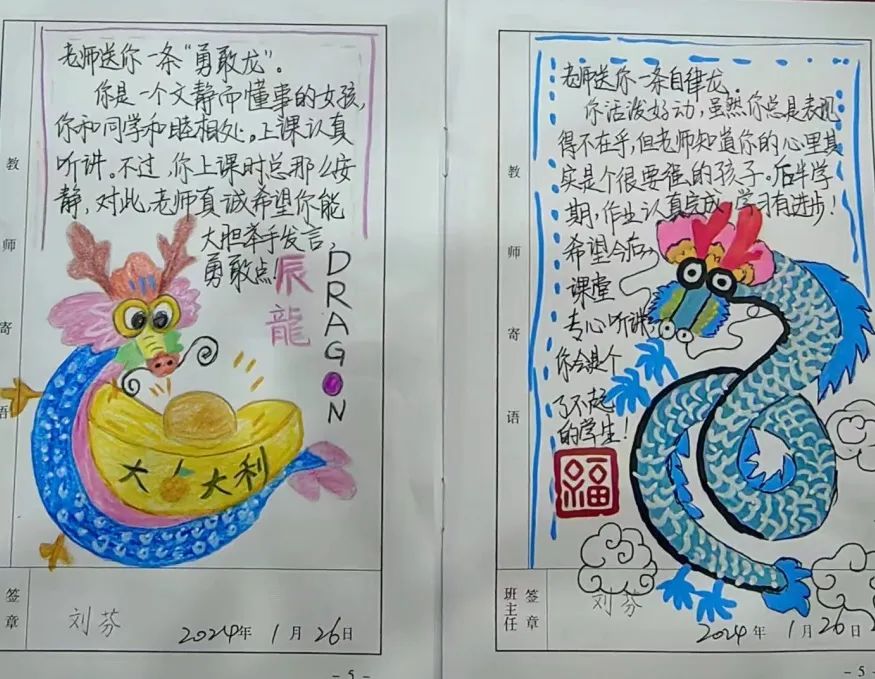 老师送你一条“勇敢龙”.
你是一个文静而懂事的女孩,
你和同学和睦相处。上课认真
听讲。不过,你上课时总那么安
静,对此,老师真诚希望你能
大胆举手发言,
勇敢点!
辰龍
DRAGON
大大利
教师寄语
签章
刘芬
2024年1月26日
-5-
老师送你一条自律龙.
你活泼好动,虽然你总是表现
得不在乎,但老师知道你的心里其
实是个很要强的孩子。后半学
期,作业认真完成,学习有进步!
希望今后
课堂
专心听讲
你会是个
了不起
的学生!
福
教师寄语
班主任签章
刘芬
2024年1月26日
-5-